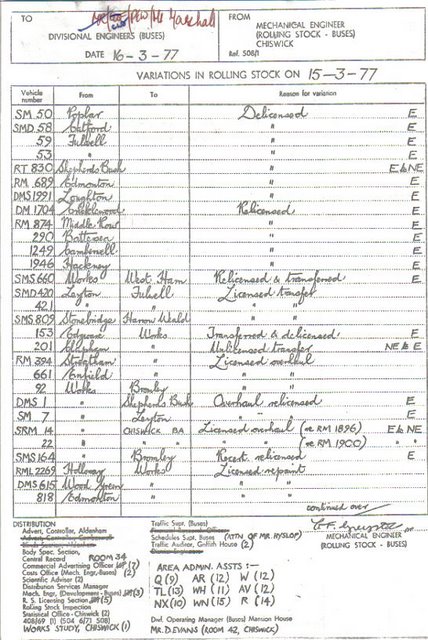 TO
FROM
MECHANICAL ENGINEER
(ROLLING STOCK - BUSES)
CHISWICK
DIVISIONAL ENGINEERS (BUSES)
DATE 16-3-77
Ref. 508/1
VARIATIONS IN ROLLING STOCK ON 15-3-77
Vehicle number From To Reason for variation
SM 50 Poplar Delicensed E
SMD 58 Catford " E
59 Fulwell " E
53 " " E
RT 830 Shepherds Bush " E & NE
RM 689 Edmonton " E
DMS 1991 Loughton " E
DM 1704 Cricklewood Relicensed E
RM 874 Middle Row " E
290 Battersea " E
1249 Camberwell " E
1946 Hackney " E
SMS 660 Works West Ham Relicensed & transferred E
SMD 420 Leyton Fulwell Licensed transfer
421 " " " "
SMS 809 Stonebridge Harrow Weald " "
153 Edgware Works Transferred & delicensed E
201 Clapham " Unlicensed transfer NE & E
RM 394 Streatham " Licensed overhaul
661 Enfield " " "
92 Works Bromley " "
DMS 1 " Shepherds Bush Overhaul relicensed E
SM 7 " Leyton " " E
SRM 14 " CHISWICK BA Licensed overhaul (ex RM 1896) E & NE
22 " " " " (ex RM 1900) " "
SMS 164 " Bromley Recert. relicensed E
RML 2269 Holloway Works Licensed repaint
DMS 615 Wood Green " " "
818 Edmonton " " "
continued over
DISTRIBUTION
Advert. Controller, Aldenham
Body Spec. Section,
Central Record ROOM 34
Commercial Advertising Officer (7)
Costs Office (Mech. Engr, Buses) (2)
Scientific Adviser (2)
Distribution Services Manager
Mech. Engr, (Development - Buses) (3)
R. S. Licensing Section (5)
Rolling Stock Inspection
Statistical Office - Chiswick (2)
408/69 (1) (504 6/71 508)
WORKS STUDY, CHISWICK (1)
Traffic Supt. (Buses)
Schedules Supt. (Buses) (ATTN OF MR. HYSLOP)
Traffic Auditor, Griffith House (2)
AREA ADMIN. ASSTS :-
Q (9) AR (12) W (12)
TL (13) WH (11) AV (12)
NX (10) WN (15) R (14)
Dvl. Operating Manager (Buses) Manson House
MR. D. EVANS (ROOM 42, CHISWICK)
MECHANICAL ENGINEER
(ROLLING STOCK - BUSES)